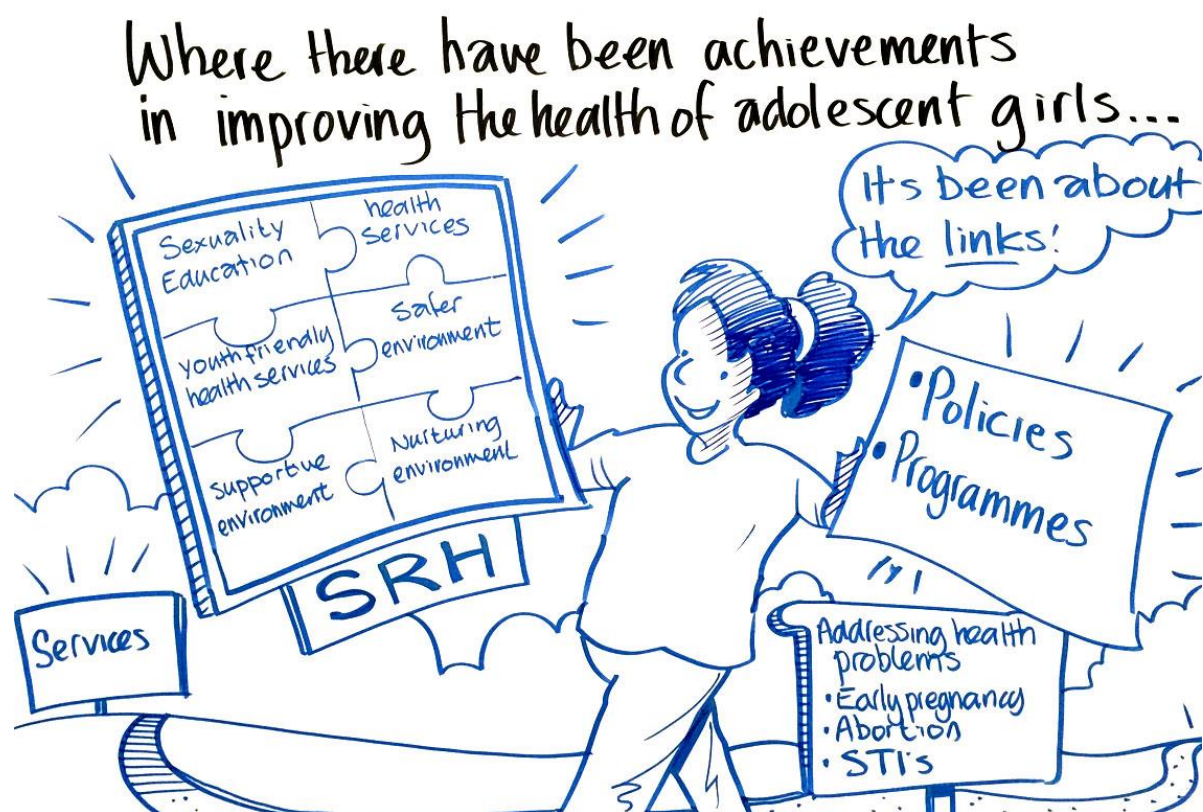 Where there have been achievements
in improving the health of adolescent girls...
It's been about
the links!
Sexuality
Education
health
services
youth friendly
health services
Safer
environment
supportive
environment
Nurturing
environment
SRH
Services
• Policies
• Programmes
Addressing health
problems
• Early pregnancy
• Abortion
• STI's